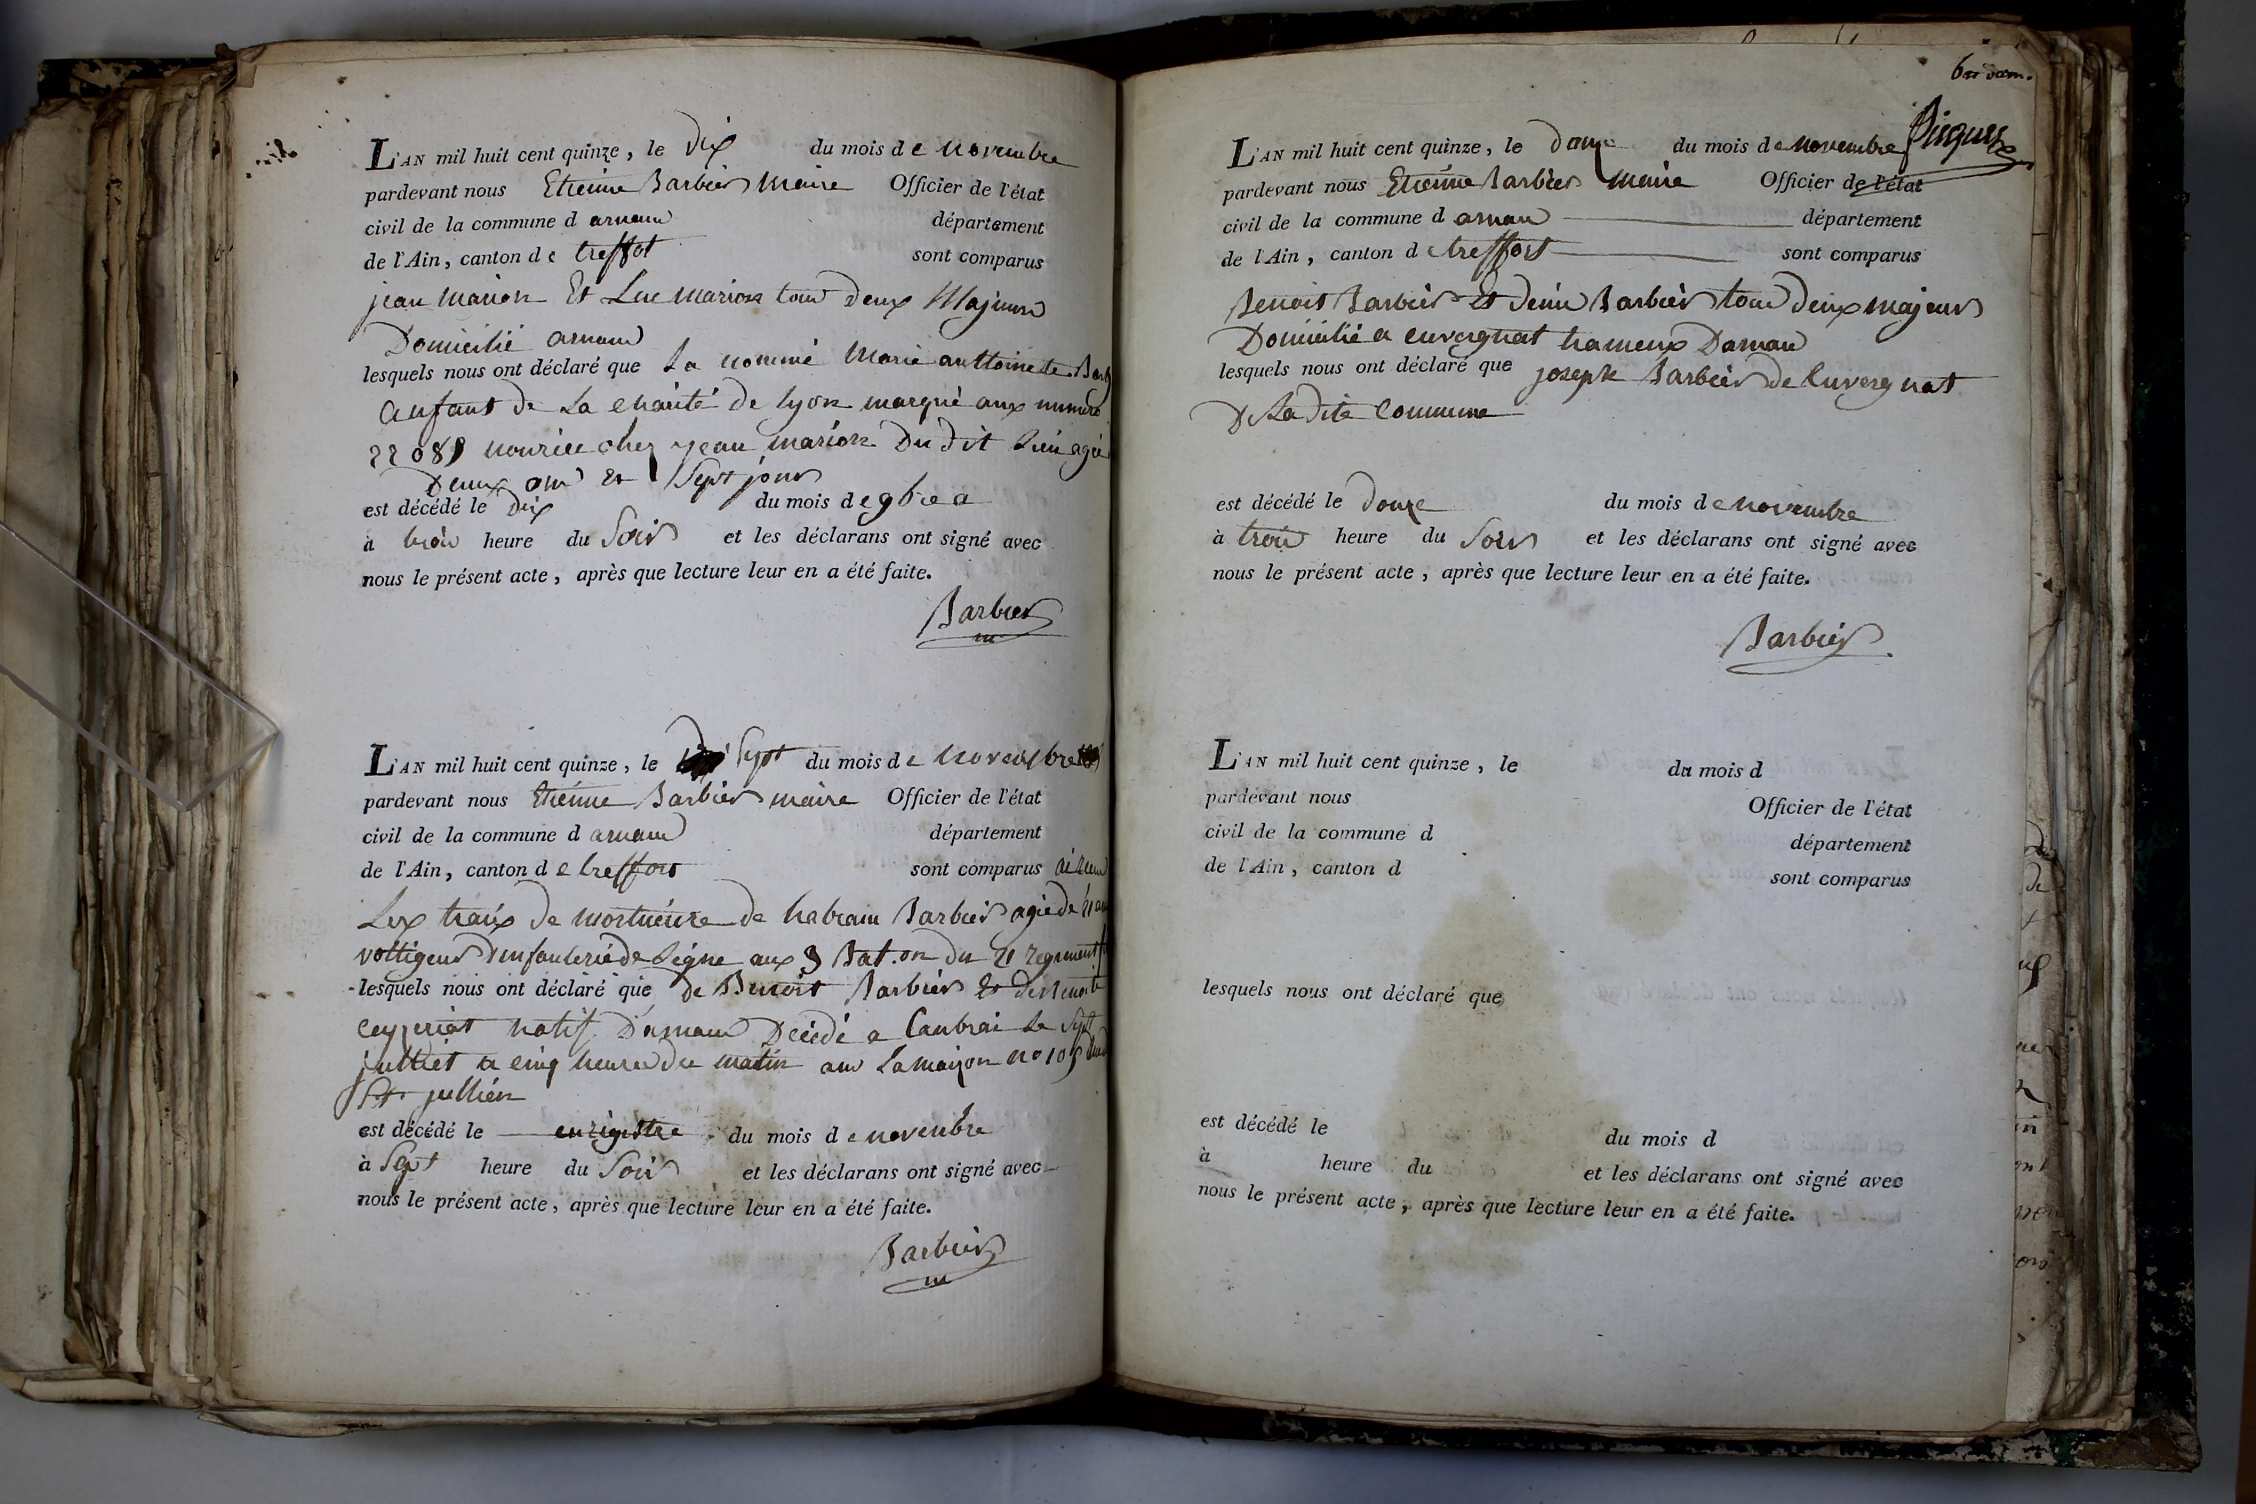 L'AN mil huit cent quinze, le dix du mois de novembre
pardevant nous Etienne Barbier maire Officier de l'état
civil de la commune d arnaud département
de l'Ain, canton de treffot sont comparus
jean marion Et Luc marion tout deux Majeurs
Domicilié arnaud
lesquels nous ont déclaré que La nommé Marie anttoinette
anfant de La charité de lyon marqué aux numéro
22089 nourice chez jean marion Du dit lieu agié
Deux ans et Sept jours
est décédé le dix du mois de 9bre a
à trois heure du Soir et les déclarans ont signé avec
nous le présent acte, après que lecture leur en a été faite.
Barbier
L'AN mil huit cent quinze, le Sept du mois de novembre
pardevant nous Etienne Barbier maire Officier de l'état
civil de la commune d arnaud département
de l'Ain, canton de treffort sont comparus
Lex traix de mortuéure de habram Barbier agié de 21 ans
voltigeur d'enfanterie de Ligne aux 3 Bat.on du 21 regiment
lesquels nous ont déclaré que de Benoit Barbier Et
ceyzeriat natif D'arnaud Décédé a Canbrai Le Sept
julliet a cinq heure du matin an La maizon no 105
St. jullien
est décédé le enrigistre du mois de novembre
à Sept heure du Soir et les déclarans ont signé avec
nous le présent acte, après que lecture leur en a été faite.
Barbier
L'AN mil huit cent quinze, le douze du mois de novembre
pardevant nous Etienne Barbier maire Officier de l'état
civil de la commune d arnaud département
de l'Ain, canton de treffort sont comparus
Benoit Barbier Et denie Barbier tout deux majeurs
Domicilié a cuvergnat hameux Darnaud
lesquels nous ont déclaré que joseph Barbier de Cuvergnat
D La dite Commune
est décédé le douze du mois de novembre
à trois heure du Soir et les déclarans ont signé avec
nous le présent acte, après que lecture leur en a été faite.
Barbier
L'AN mil huit cent quinze, le du mois d
pardevant nous Officier de l'état
civil de la commune d département
de l'Ain, canton d sont comparus
lesquels nous ont déclaré que
est décédé le du mois d
à heure du et les déclarans ont signé avec
nous le présent acte, après que lecture leur en a été faite.